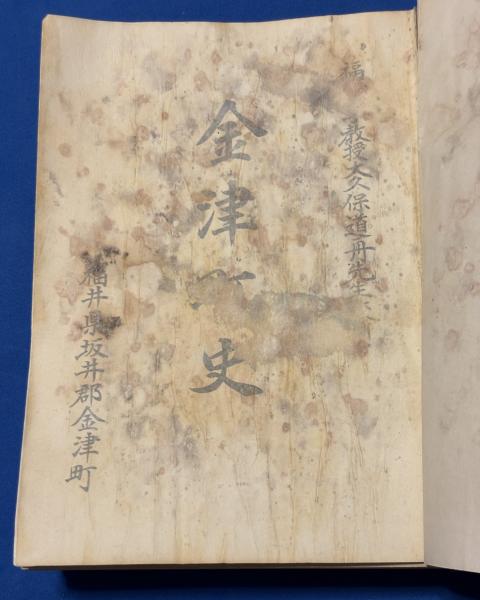 福
教授大久保道丹先生
金津 史
福井県坂井郡金津町